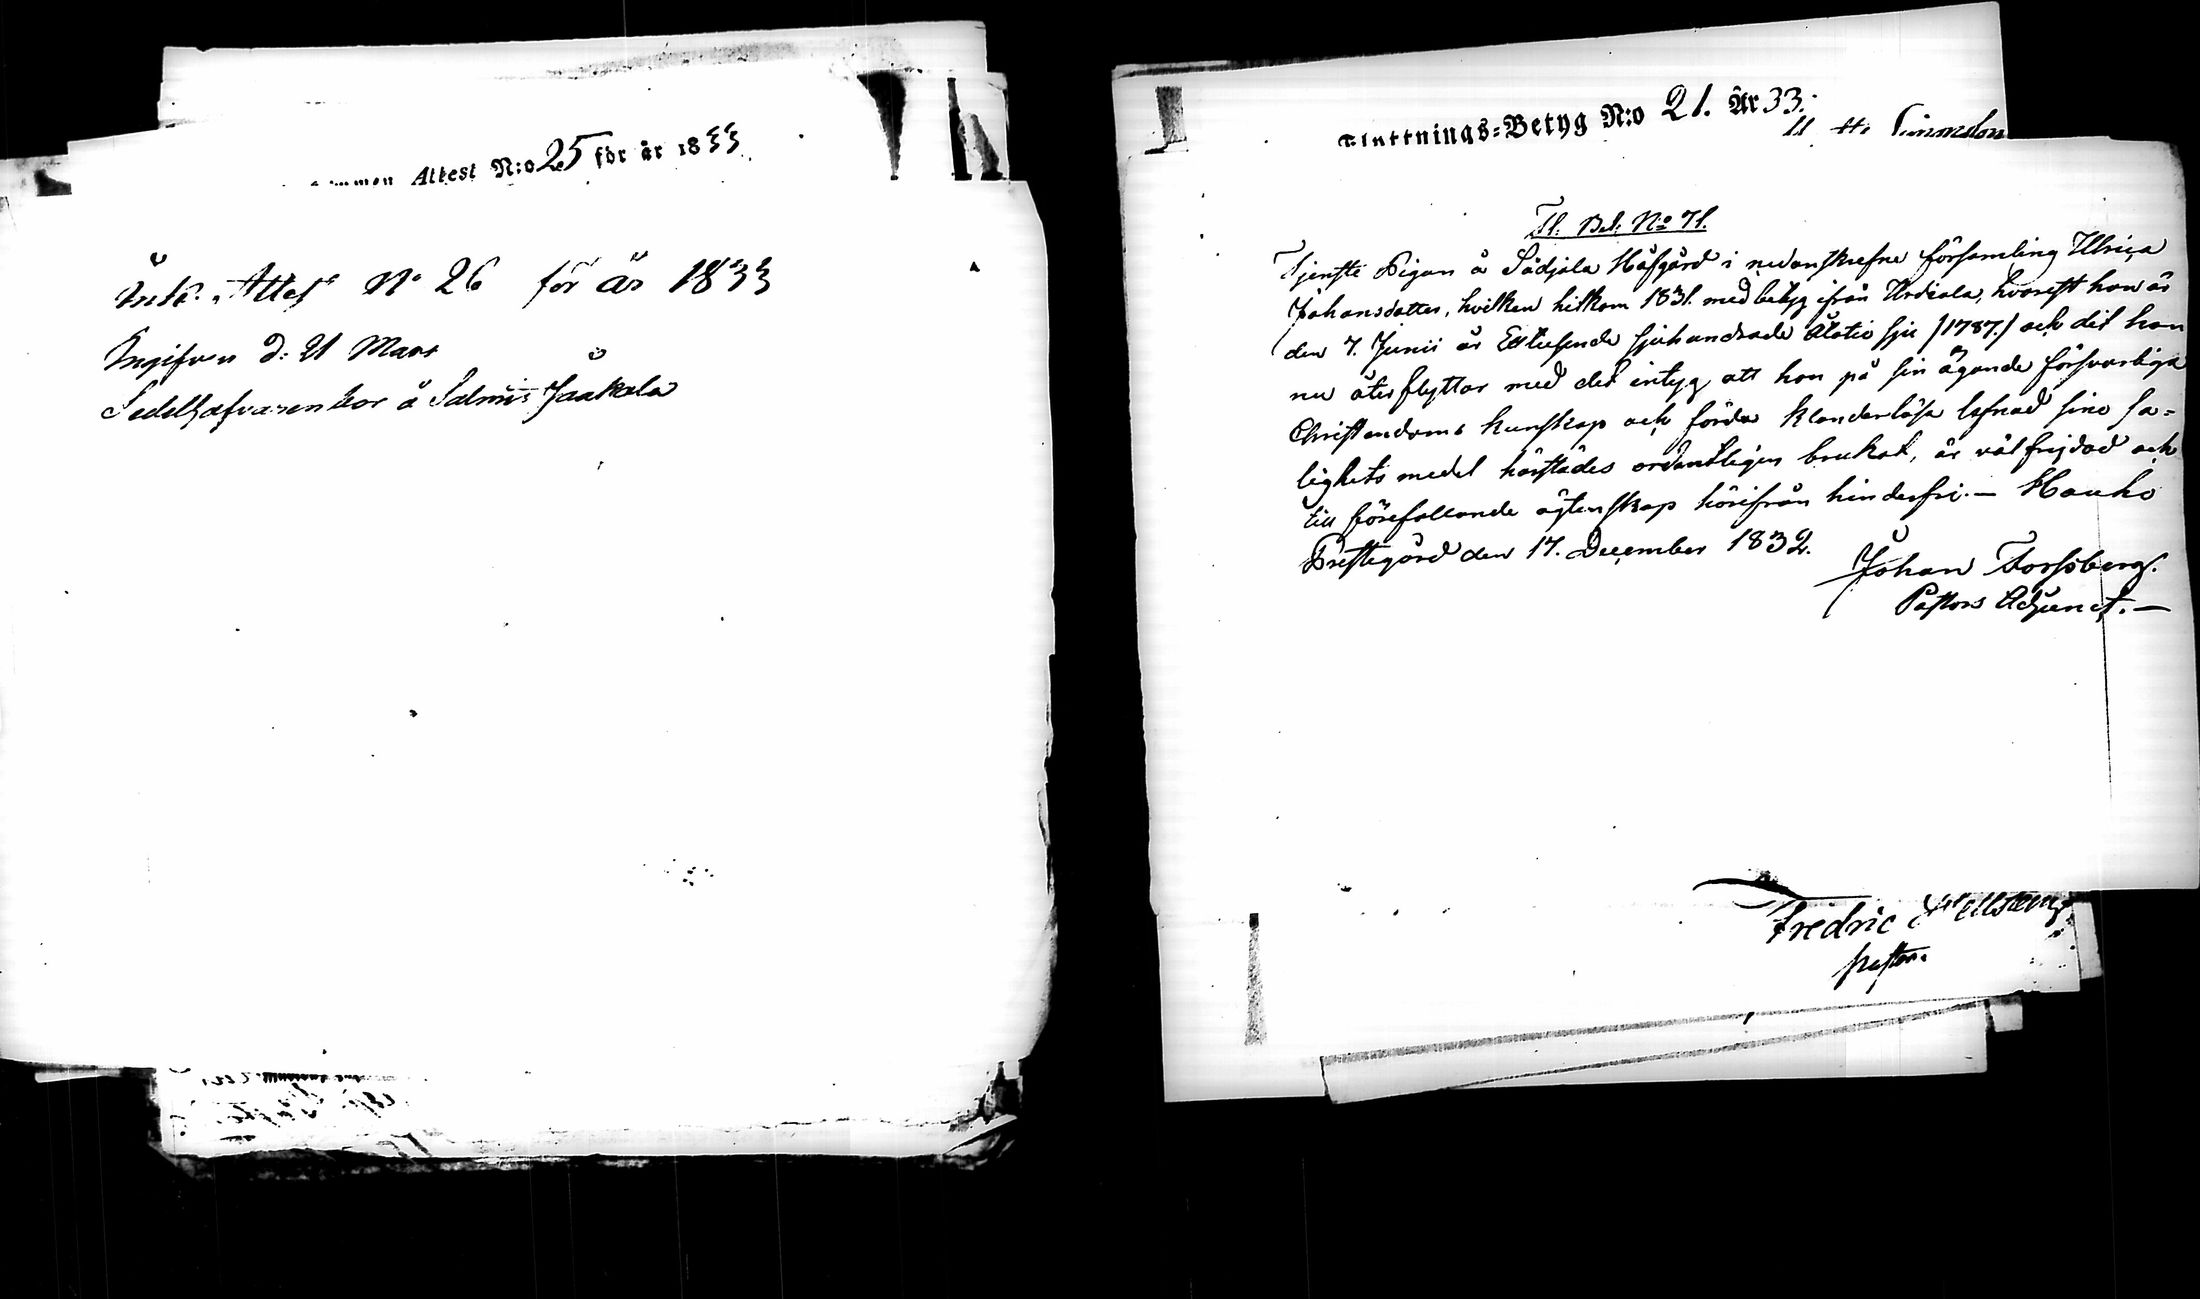 Attest N:o 25 för år 1833
Ink. Attest No 26 för år 1833
Ingifven d: 21 Mars
Sedelhafvaren bor å Salmis Jaakola
Flyttnings-Betyg N:o 21. År 33.
Fl. Bet. No 71.
Tjenste Pigan å Sädjala Håfgård i nedanskrefne församling Ulrica
Johansdotter, hvilken hitkom 1831. med betyg ifrån Urdiala, hvarest hon är
den 7. Junii år Ettusende sjuhundrade åttatio sju /1787./ och dit hon
nu återflyttar med det intyg att hon på sin ägande försvarliga
Christendoms kunskap och förda klanderlösa lefnad sine sa-
lighets medel härstädes ordentligen brukat, är välfrejdad och
till förefallande äktenskap härifrån hinderfri.— Hauho
Prestegård den 17. December 1832.
Johan Forssberg.
Pastors Adjunct.—
Fredric
pastor.